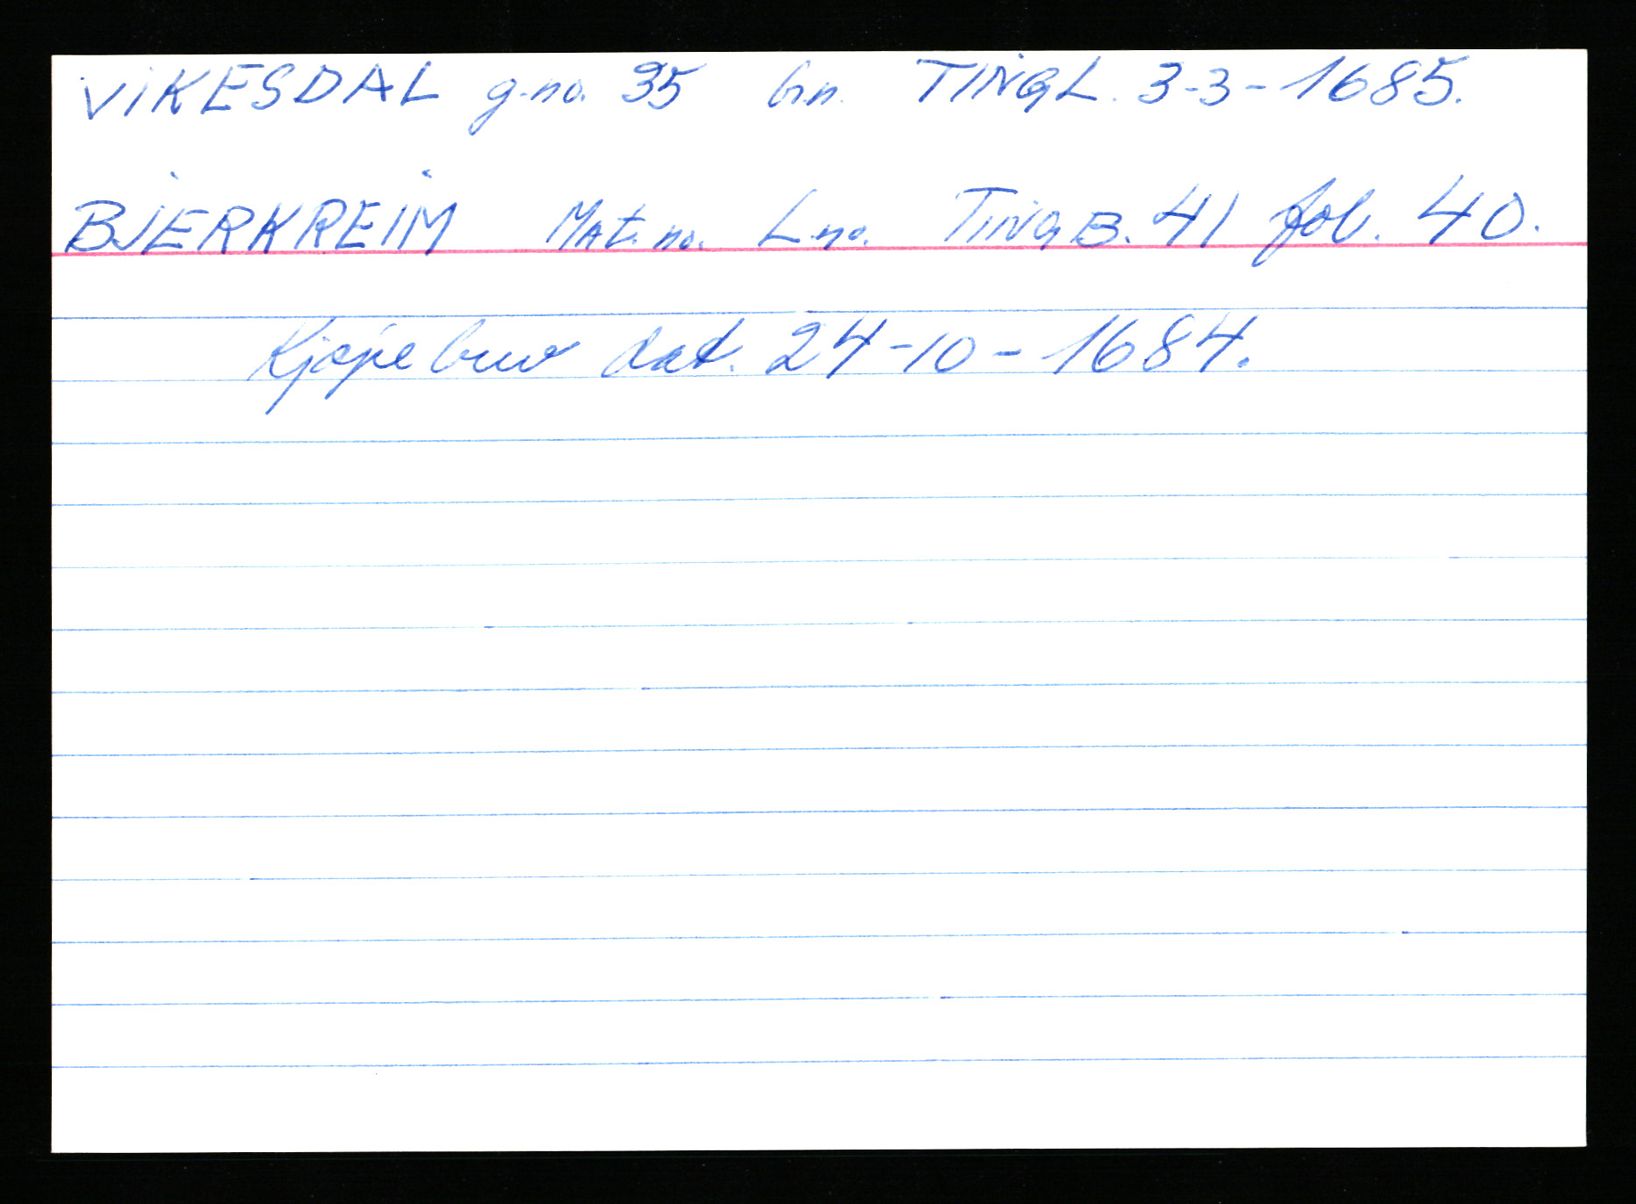 VIKESDAL g.no. 35 b.n. TINGL. 3-3-1685.
BJERKREIM Mat.no. L.no. TINGB. 41 fol. 40.
Kjøpebrev dat. 24-10-1684.